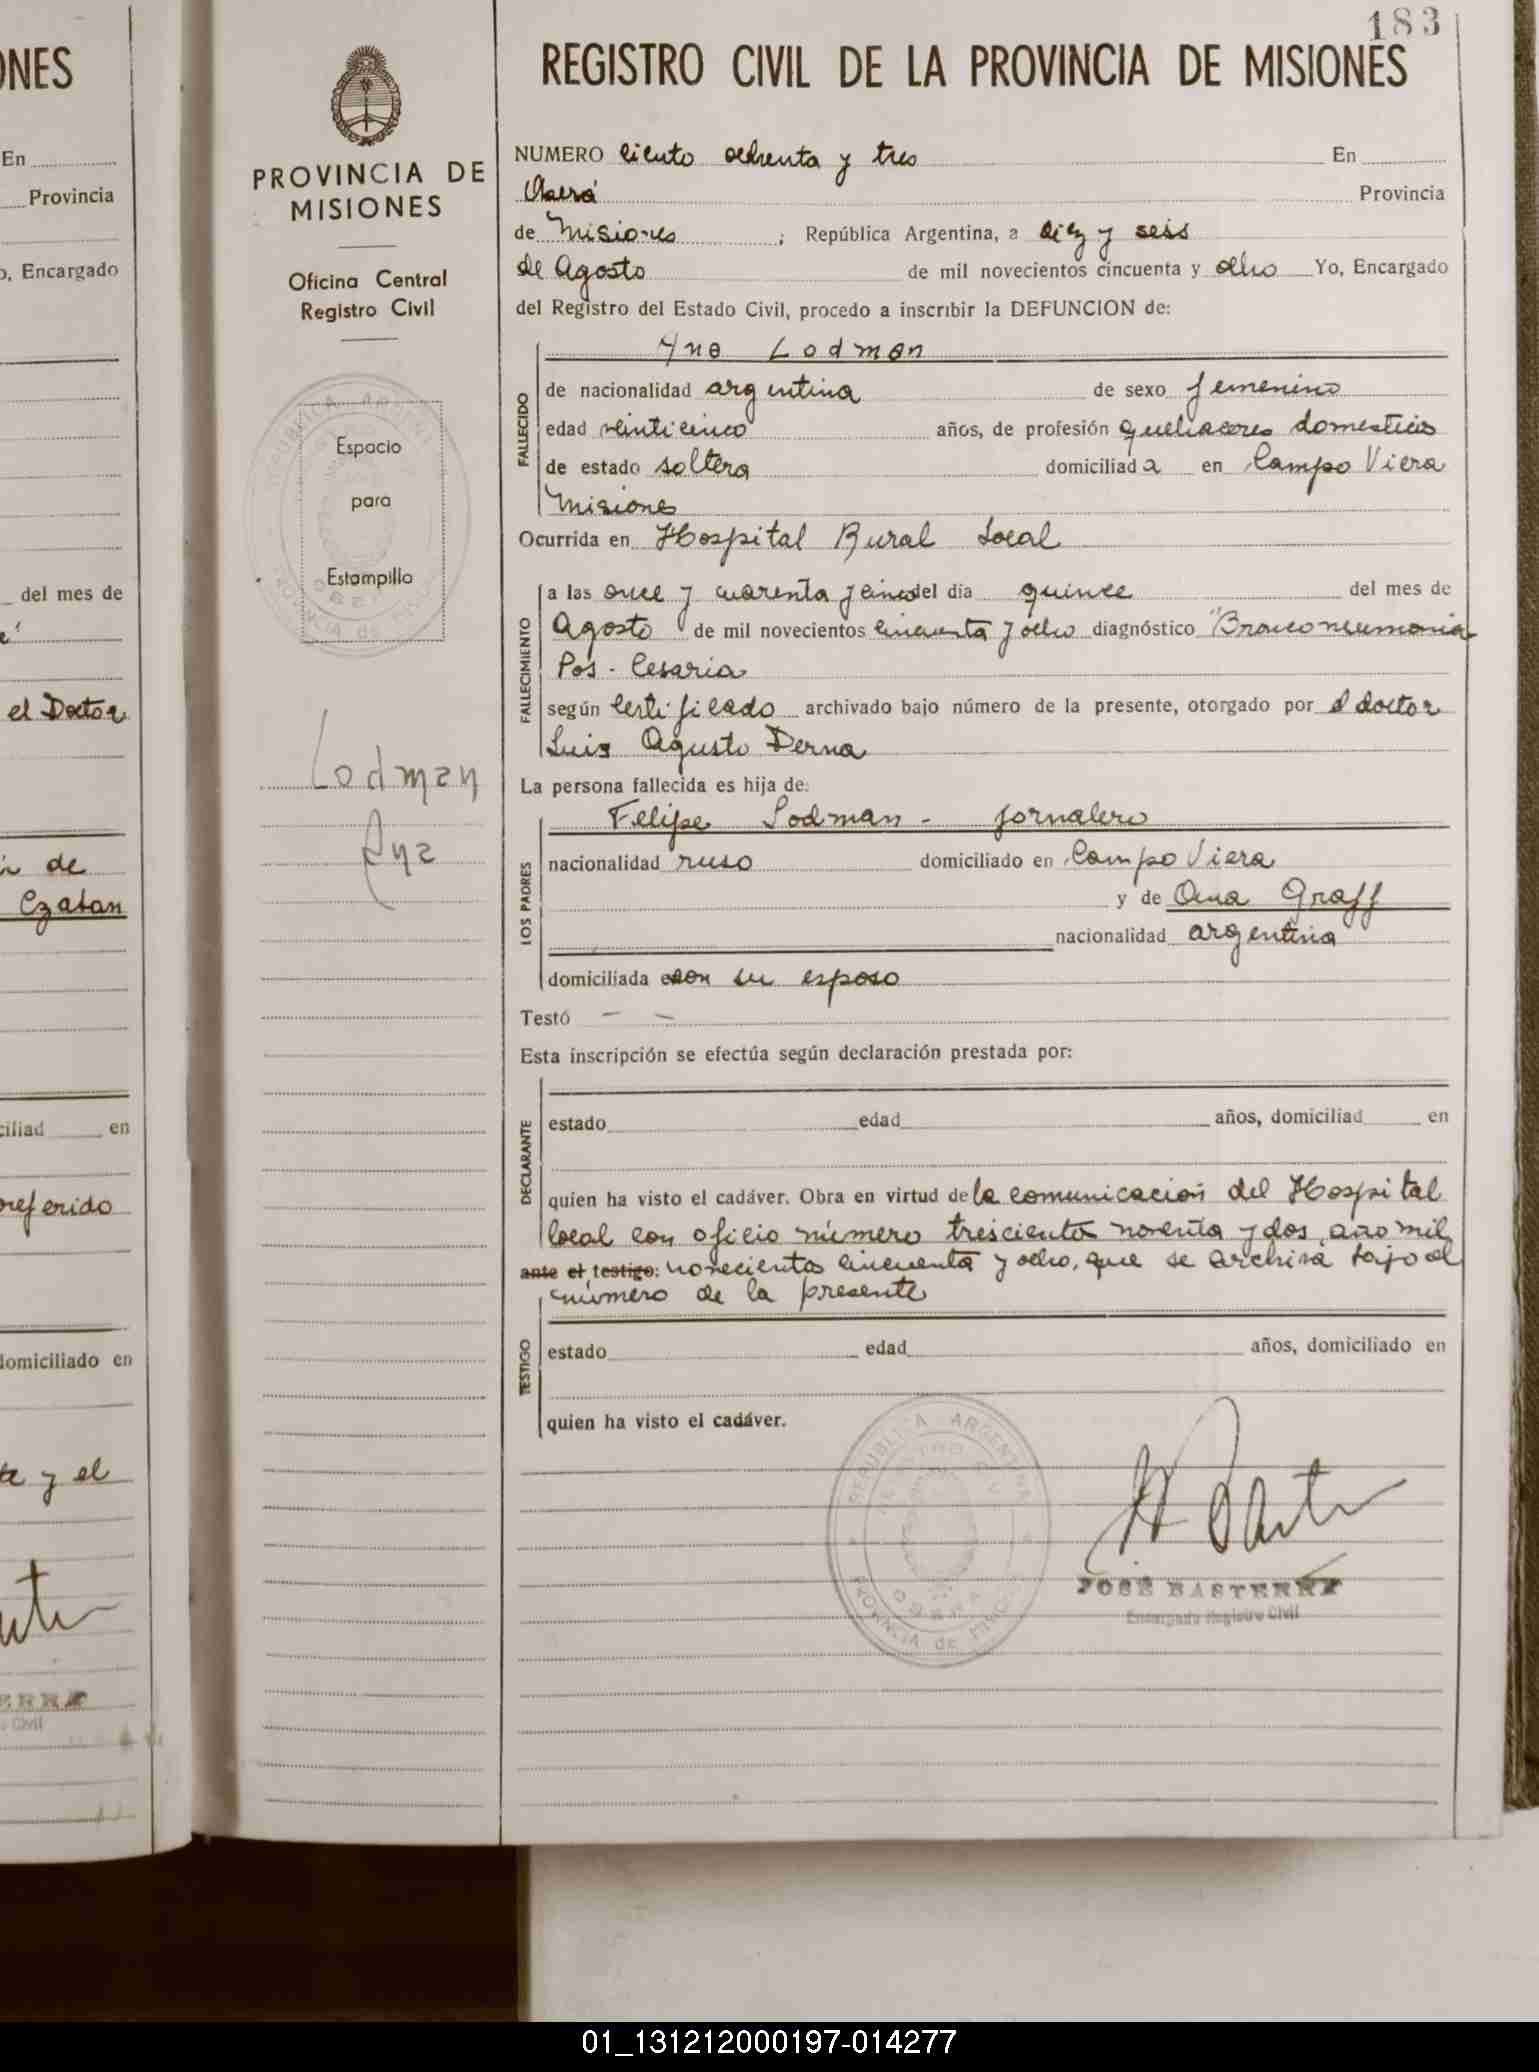 183
REGISTRO CIVIL DE LA PROVINCIA DE MISIONES
ONES
En
Provincia
o, Encargado
del mes de
el Doctor
de
Czatan
ciliad en
referido
domiciliado en
y el
PROVINCIA DE
MISIONES
Oficina Central
Registro Civil
Espacio
para
Estampilla
Lodman
Ana
NUMERO ciento ochenta y tres En
Oberá Provincia
de Misiones ; República Argentina, a diez y seis
de Agosto de mil novecientos cincuenta y ocho Yo, Encargado
del Registro del Estado Civil, procedo a inscribir la DEFUNCION de:
Ana Lodman
FALLECIDO
de nacionalidad argentina de sexo femenino
edad veinticinco años, de profesión quehaceres domesticos
de estado soltera domiciliada en Campo Viera
Misiones
Ocurrida en Hospital Rural Local
FALLECIMIENTO
a las once y cuarenta y cinco del día quince del mes de
Agosto de mil novecientos cincuenta y ocho diagnóstico "Bronconeumonia
Pos - Cesaria
según Certificado archivado bajo número de la presente, otorgado por el doctor
Luis Agusto Derna
La persona fallecida es hija de:
LOS PADRES
Felipe Lodman - jornalero
nacionalidad ruso domiciliado en Campo Viera
y de Ana Graff
nacionalidad argentina
domiciliada con su esposo
Testó - -
Esta inscripción se efectúa según declaración prestada por:
DECLARANTE
estado edad años, domiciliad en
quien ha visto el cadáver. Obra en virtud de la comunicación del Hospital
local con oficio número trescientos noventa y dos, año mil
ante el testigo: novecientos cincuenta y ocho, que se archiva bajo el
número de la presente
TESTIGO
estado edad años, domiciliado en
quien ha visto el cadáver.
REPUBLICA ARGENTINA
PROVINCIA de MISIONES
OBERA
JOSÉ BASTERRA
Encargado Registro Civil
01_131212000197-014277